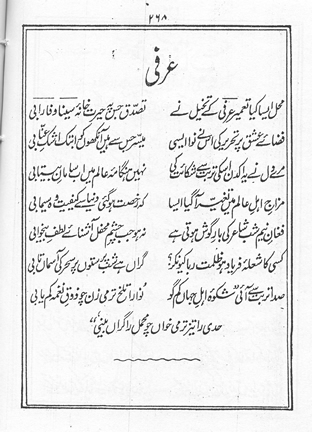 ۲۶۸
عرفی
محل ایسا کیا تعمیر عرفی کے تخیل نے تصدق جس پہ حیرت خانۂ سینا و فارابی
فضائے عشق پر تحریر کی اس نے نوا ایسی میسر جس سے ہیں آنکھوں کو اب تک اشکِ عنابی
مرے دل نے یہ اک دن اس کی تربت سے شکایت کی نہیں ہنگامۂ عالم میں اب سامانِ بیتابی
مزاجِ اہلِ عالم میں تغیر آگیا ایسا کہ رخصت ہوگئی دنیا سے کیفیت وہ سیمابی
فغانِ نیم شب شاعر کی بارِ گوش ہوتی ہے نہ ہو جب چشمِ محفل آشنائے لطفِ بیخوابی
کسی کا شعلۂ فریاد ہو ظلمت ربا کیونکر؟ گراں ہے شب پرستوں پر سحر کی آسماں تابی
صدا تربت سے آئی "شکوۂ اہلِ جہاں کم گو نوا را تلخ تر می زن چو ذوقِ نغمہ کم یابی
حدی را تیز تر می خواں چو محمل را گراں بینی"